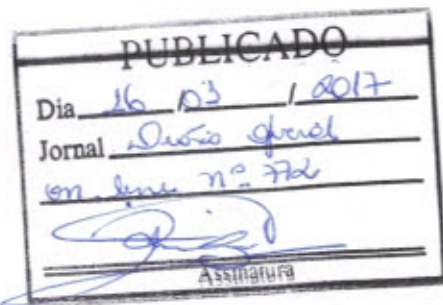 PUBLICADO
Dia 16 / 03 / 2017
Jornal Diário Geral
on line nº 772
Assinatura